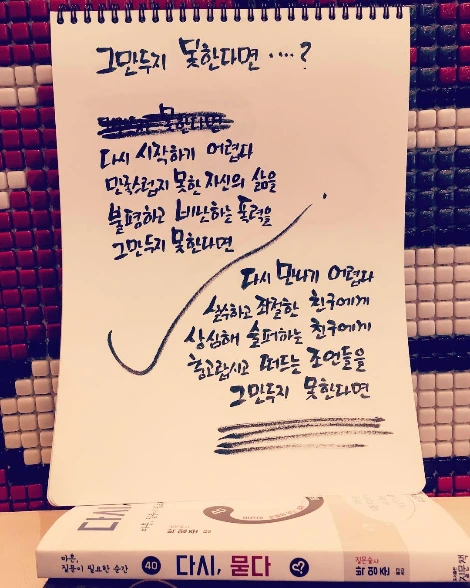 그만두지 못한다면 ····?
다시 시작하기 어렵다
만족스럽지 못한 자신의 삶을
불평하고 비난하는 폭력을
그만두지 못한다면
다시 만나기 어렵다
실수하고 좌절한 친구에게
상심해 슬퍼하는 친구에게
충고랍시고 떠드는 조언들을
그만두지 못한다면
마흔,
질문이 필요한 순간
40
다시, 묻다
질문술사
지음